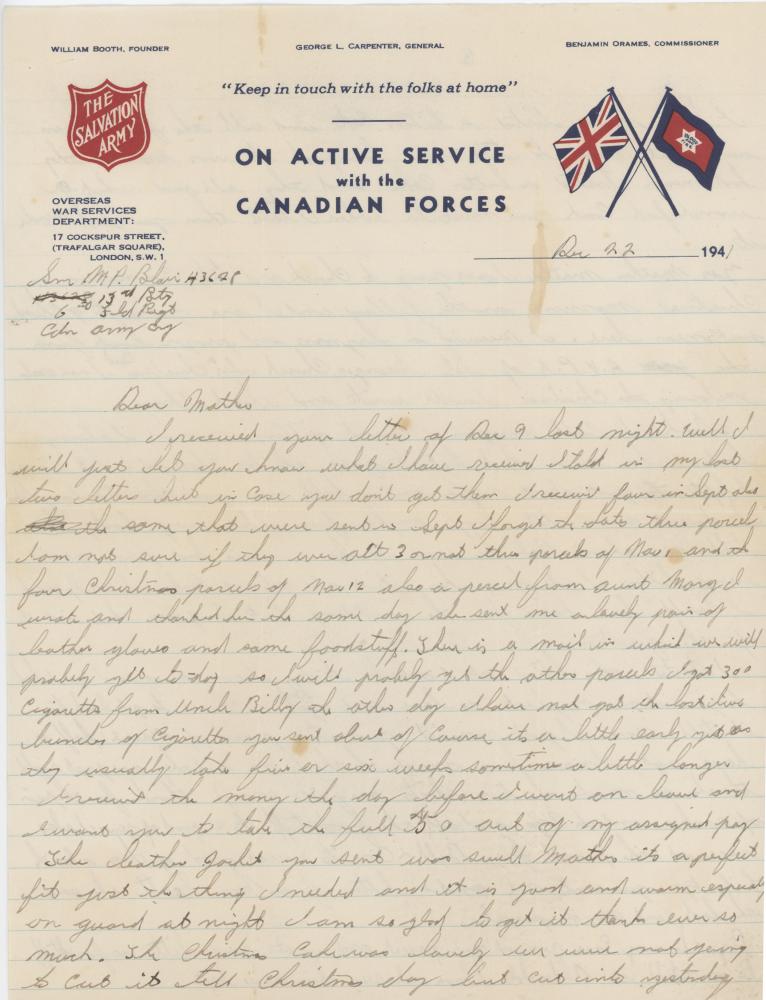 WILLIAM BOOTH, FOUNDER
GEORGE L. CARPENTER, GENERAL
BENJAMIN ORAMES, COMMISSIONER
THE
SALVATION
ARMY
"Keep in touch with the folks at home"
ON ACTIVE SERVICE
with the
CANADIAN FORCES
OVERSEAS
WAR SERVICES
DEPARTMENT:
17 COCKSPUR STREET,
(TRAFALGAR SQUARE),
LONDON, S.W. 1
Dec 22 1941
Gnr M.P. Blair 43628
13rd Bty
6 Fld Regt
Cdn army
Dear Mother
I received your letter of Dec 9 last night. Well I
will just let you know what I have receive I told in my last
two letters but in case you don't get them I receive four in Sept also
the same that were sent in Sept I forget the date three parcel
I am not sure if they were all 3 or not three parcels of Nov 1 and the
four Christmas parcels of Nov 12 also a parcel from aunt Marg I
wrote and thanked her the same day she sent me a lovely pair of
leather gloves and some foodstuff. There is a mail in which we will
probely get to-day so I will probely get the other parcels I got 300
Cigarettes from Uncle Billy the other day I have not got the last two
bunches of Cigarettes you sent of Course its a little early yet as
they usually take five or six weeks sometime a little longer
I receive the money the day before I went on leave and
I want you to take the full out of my assigned pay
The leather Jacket you sent was swell Mother its a perfect
fit just the thing I needed and it is good and warm especialy
on guard at night I am so glad to get it thank ever so
much. The Christmas Cake was lovely we were not going
to cut it till Christmas day but cut into yesterday